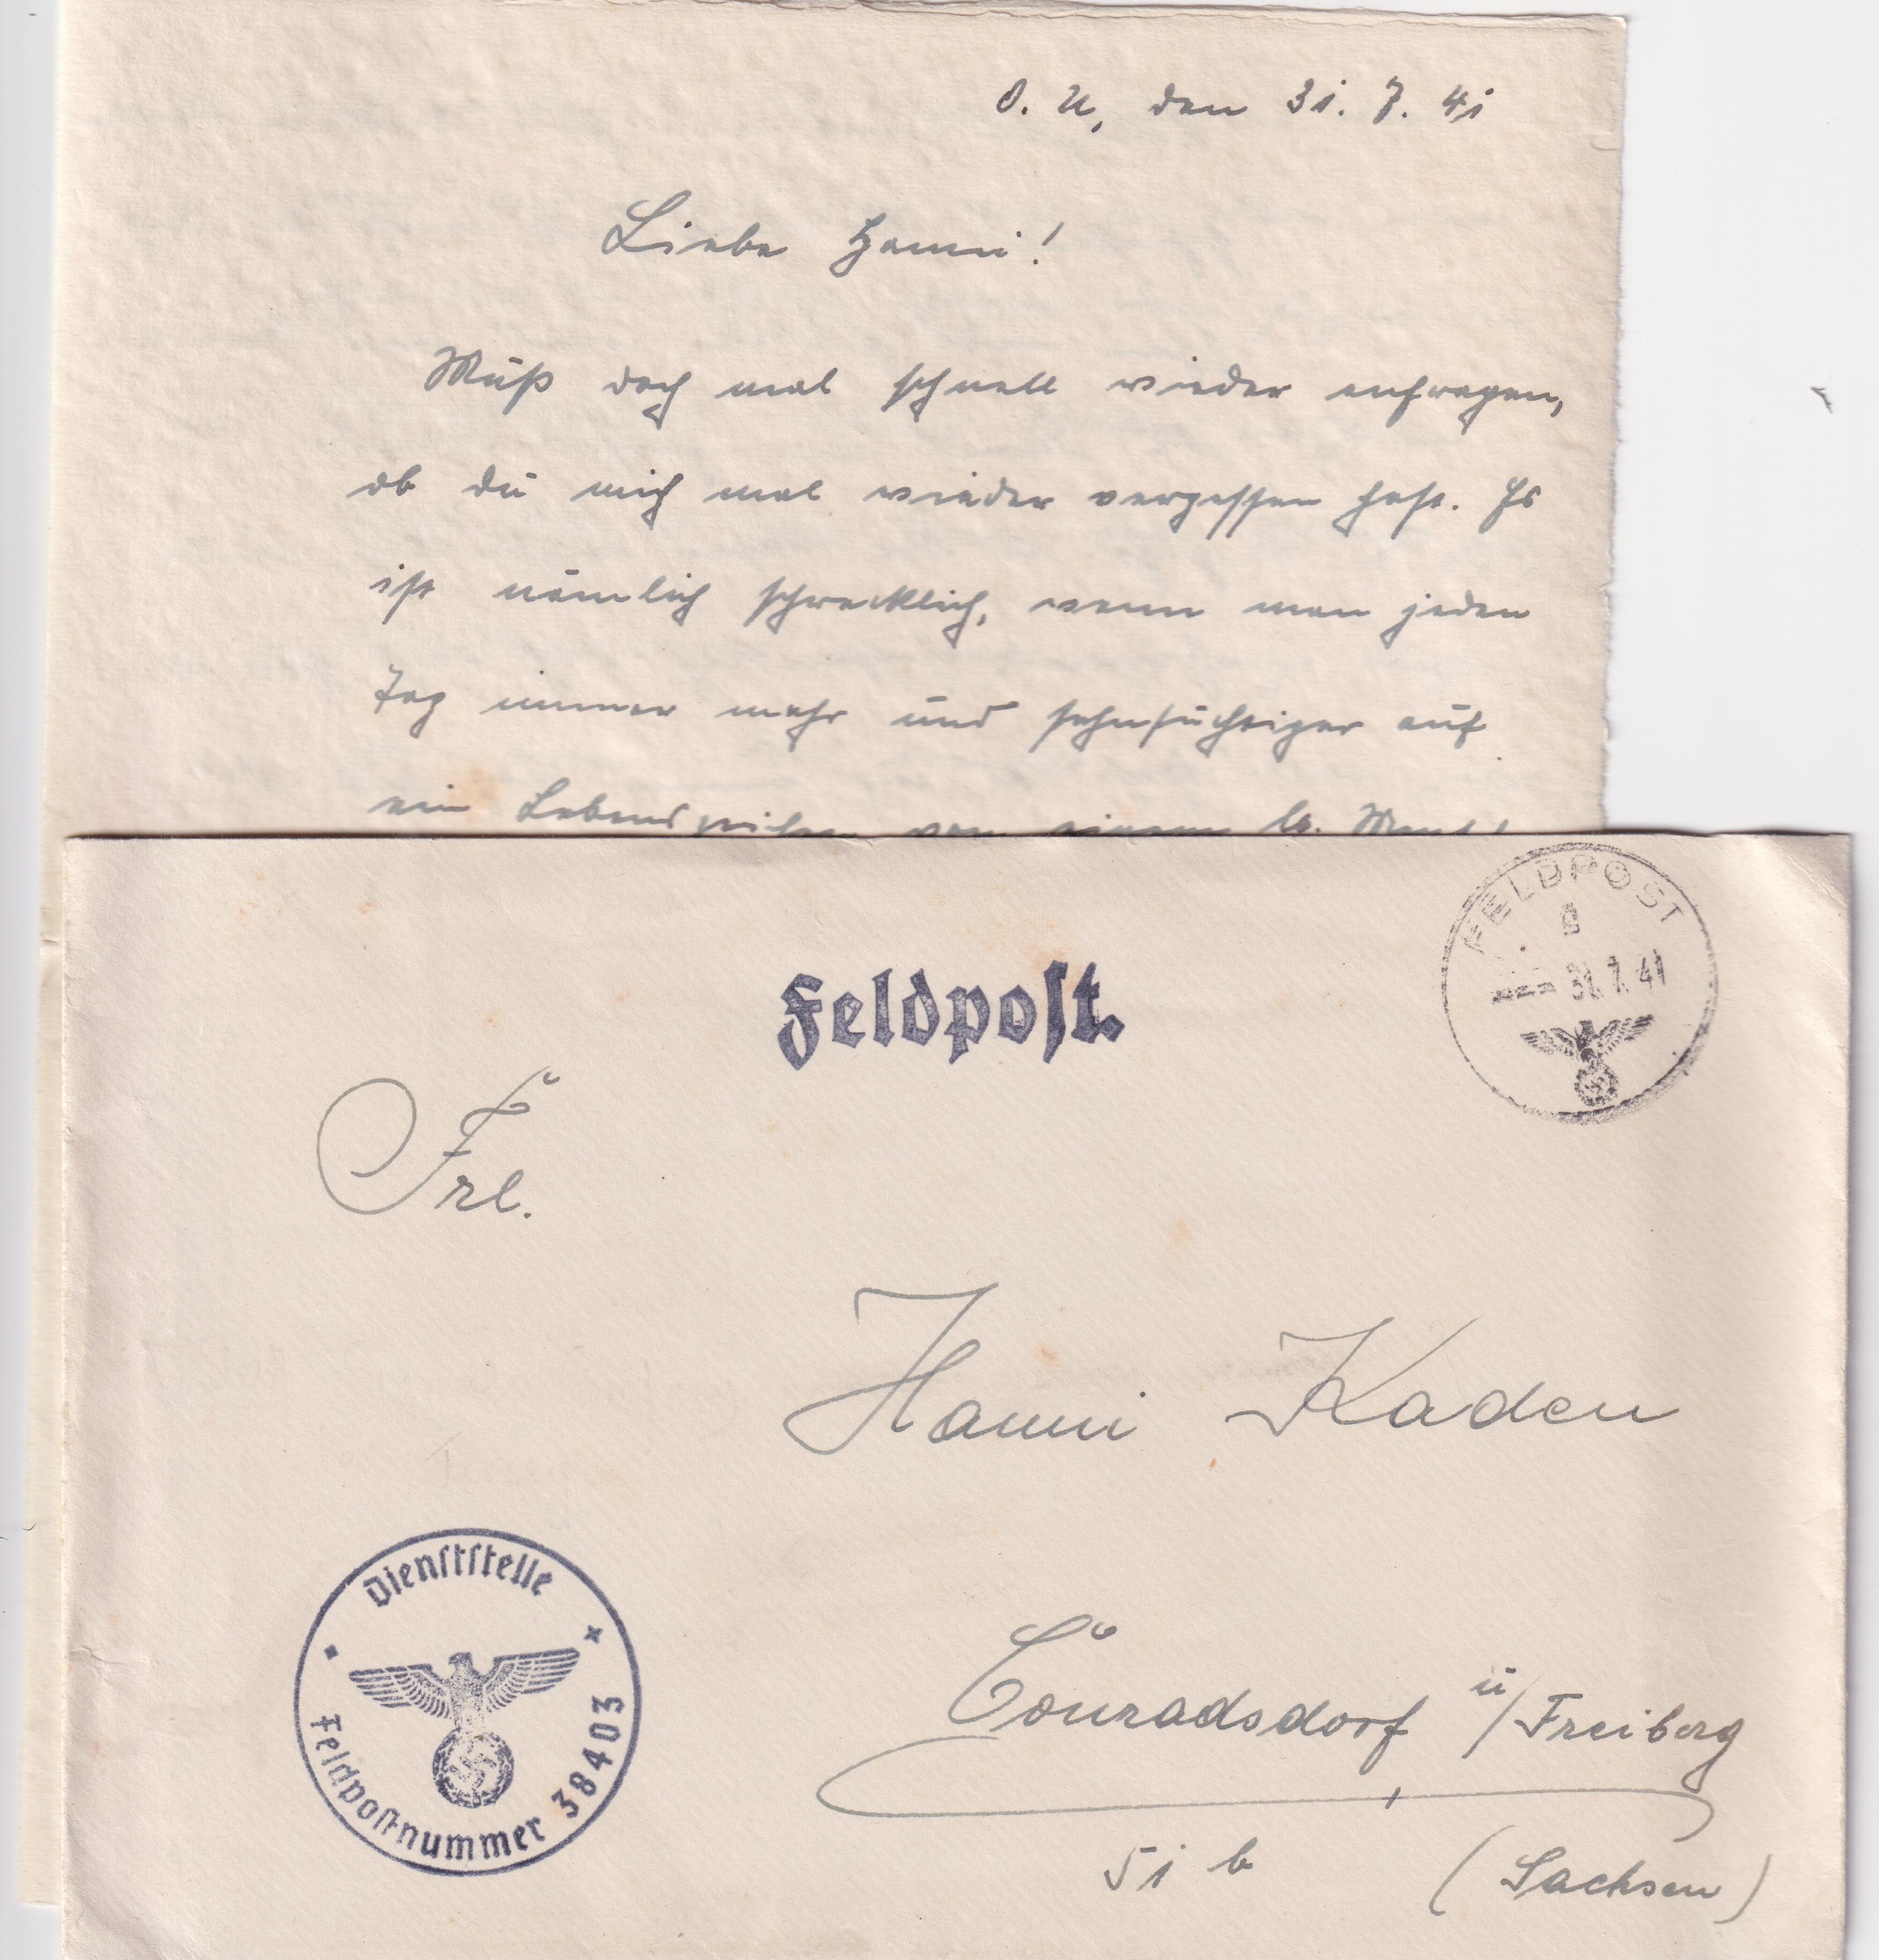 O. U, den 31. 7. 41
Liebe Hanni!
Muß doch mal schnell wieder anfragen,
ob du mich mal wieder vergessen hast. Es
ist nämlich schrecklich, wenn man jeden
Tag immer mehr und sehnsüchtiger auf
ein Lebenszeichen von einem lb.
FELDPOST
31.7.41
Feldpost.
Frl.
Hanni Kaden
Conradsdorf ü/Freiberg
51 b (Sachsen)
Dienststelle
Feldpostnummer 38403